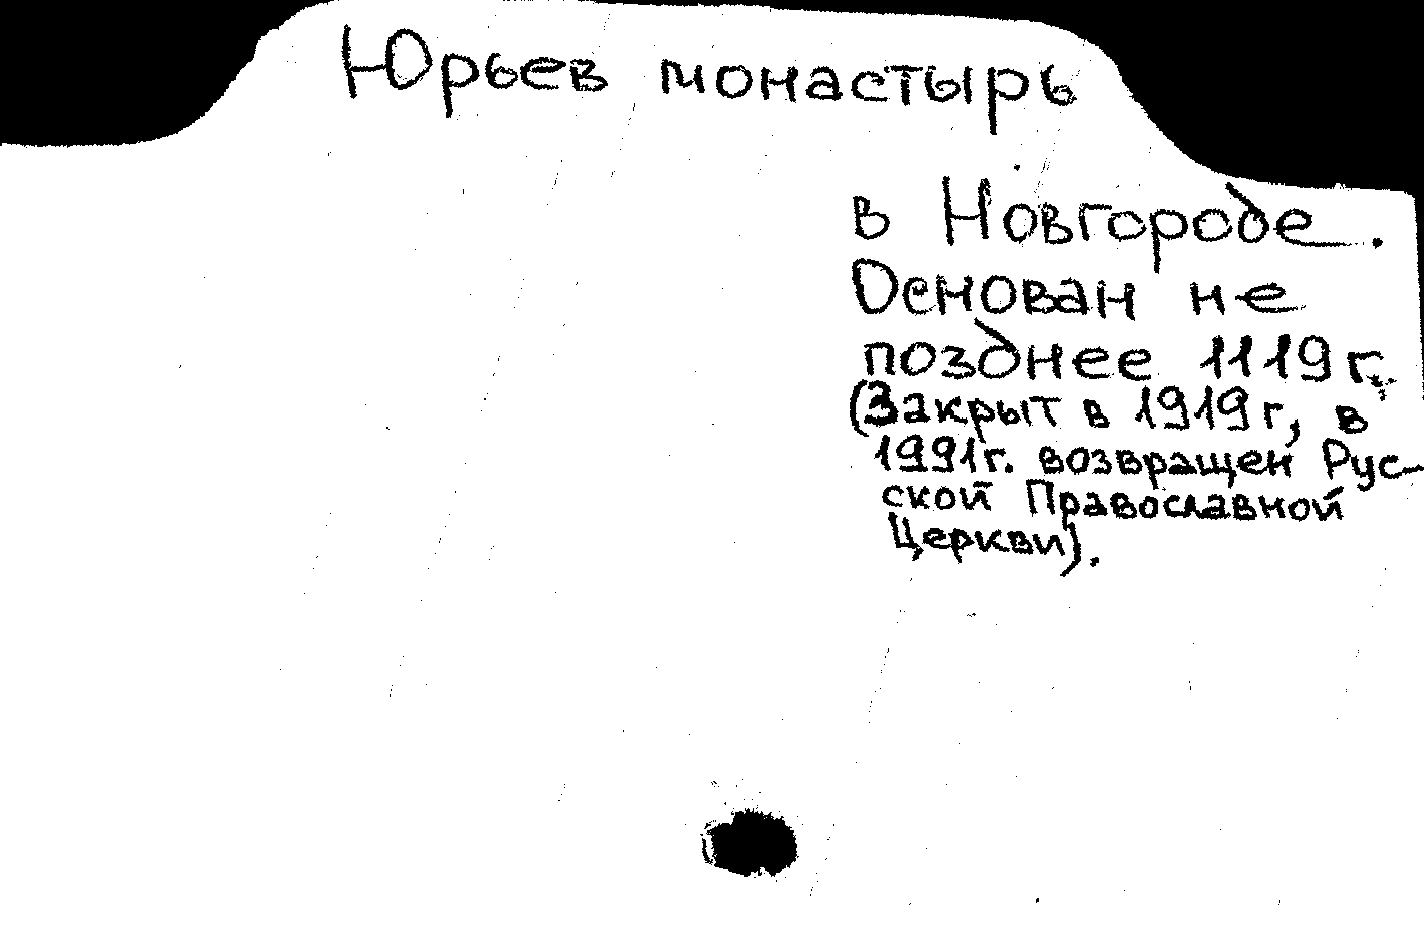 Юрьев монастырь
в Новгороде.
Основан не
позднее 1119 г.
(Закрыт в 1919 г, в
1991 г. возвращен Рус-
ской Православной
Церкви).